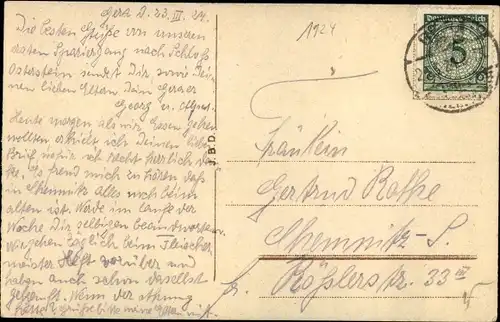 Gera d. 23. III. 24.
Die besten Grüße von unseren
ersten Spaziergang nach Schloß
Osterstein sendet Dir, sowie Dei-
nen lieben Eltern Dein Geraer
Georg u.
Heute morgen als wir Essen gehen
wollten, erhielt ich Deinen lieben
Brief, wofür ich recht herzlich dan-
ke. Es freut mich zu hören daß
in Chemnitz alles noch beim
alten ist. Werde im Laufe der
Woche Dir selbigen beantworten.
Wir gehen täglich beim Fleischer
meister vorüber und
haben auch schon daselbst
gekauft. Wenn der
meine
J.B.D.
1924
Deutsches Reich
5
Fräulein
Gertrud Rothe
Chemnitz-S.
Rößlerstr. 33 III